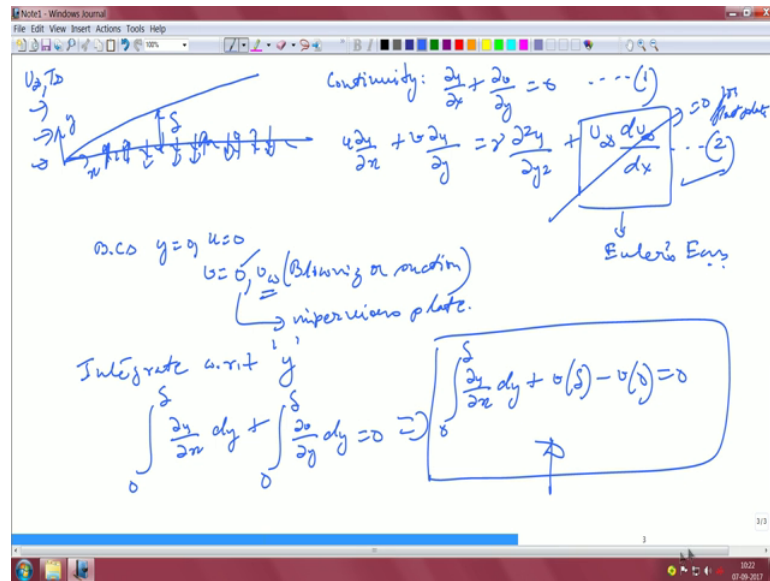 Note1 - Windows Journal
File Edit View Insert Actions Tools Help
100%
B I
U∞, T∞
y
δ
x
Continuity: ∂u/∂x + ∂v/∂y = 0 ---- (1)
u ∂u/∂x + v ∂u/∂y = ν ∂²u/∂y² + U∞ dU∞/dx --- (2)
=0 for flat plate
Euler's Eqn
B.CS y=0, u=0
v=0, vw (Blowing or suction)
impervious plate.
Integrate w.r.t 'y'
∫₀^δ ∂u/∂x dy + ∫₀^δ ∂v/∂y dy = 0 ⇒ ∫₀^δ ∂u/∂x dy + v(δ) - v(0) = 0
3/3
3
10:22
07-09-2017